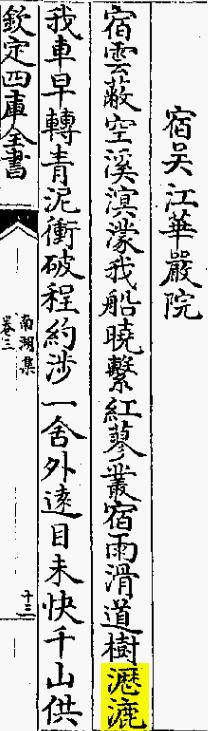 宿吴江華嚴院
宿雲蔽空溪溟濛我船曉繫紅蓼叢宿雨滑道樹瀝漉
我車早轉青泥衝破程約涉一舍外遠目未快千山供
欽定四庫全書
南湖集
卷三
十三